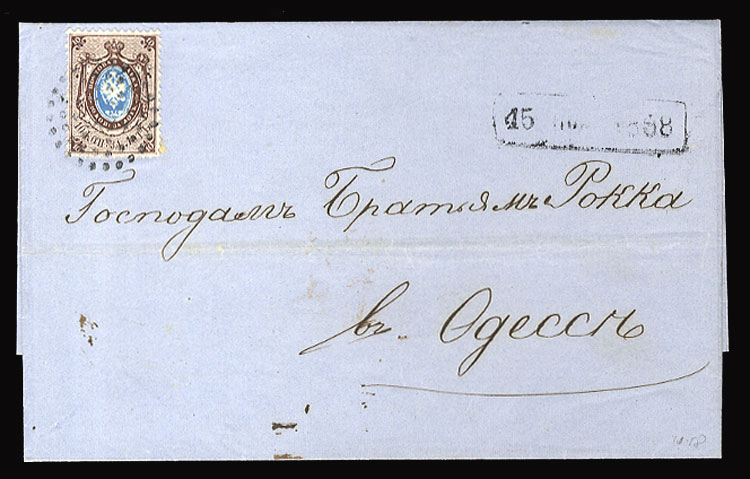 15 1868
Господамъ Братьямъ Рокка
въ Одессѣ